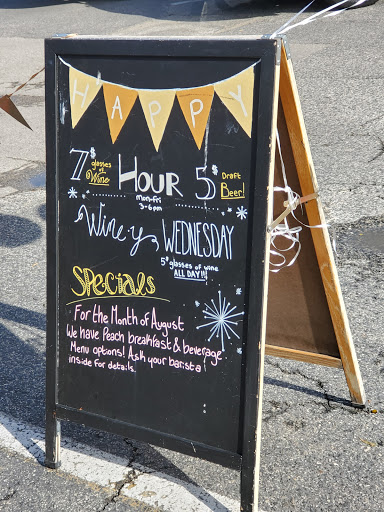 HAPPY
7$ glasses of Wine HOUR 5$ Draft Beer!
Mon-Fri
3-6pm
Wine-y WEDNESDAY
5$ glasses of wine
ALL DAY!!!
SPECIALS
For the Month of August
We have Peach breakfast & beverage
Menu options! Ask your barista
inside for details.